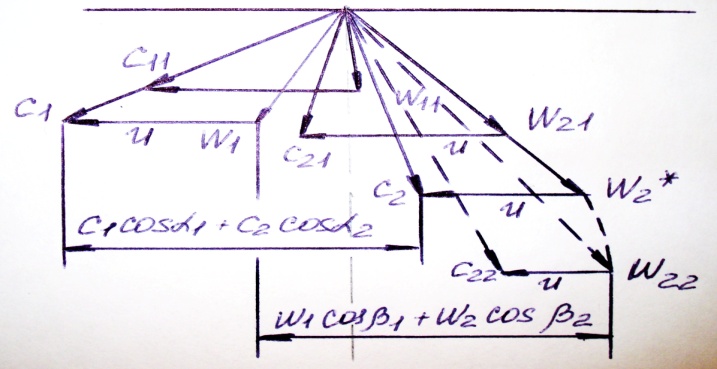 C11
W11
C1
u
W1
C21
u
W21
C2
u
W2*
C1cosα1 + C2 cosα2
C22
u
W22
W1 cosβ1 + W2 cos β2